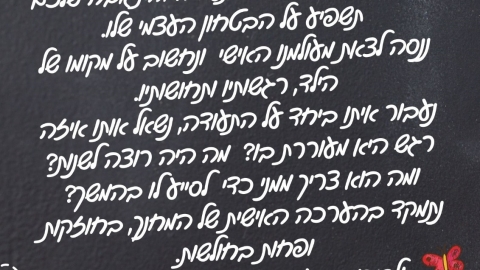 תשפיע על הבטחון העצמי שלו.
ננסה לצאת מעולמנו האישי ונחשוב על מקומו של
הילד, רגשותיו ותחושותיו.
נעבור איתו ביחד על התעודה, נשאל אותו איזה
רגש היא מעוררת בו? מה היה רוצה לשנות?
ומה הוא צריך ממני כדי לסייע לו בהמשך?
נתמקד בהערכה האישית של המחנך, בחוזקות
ופחות בחולשות.